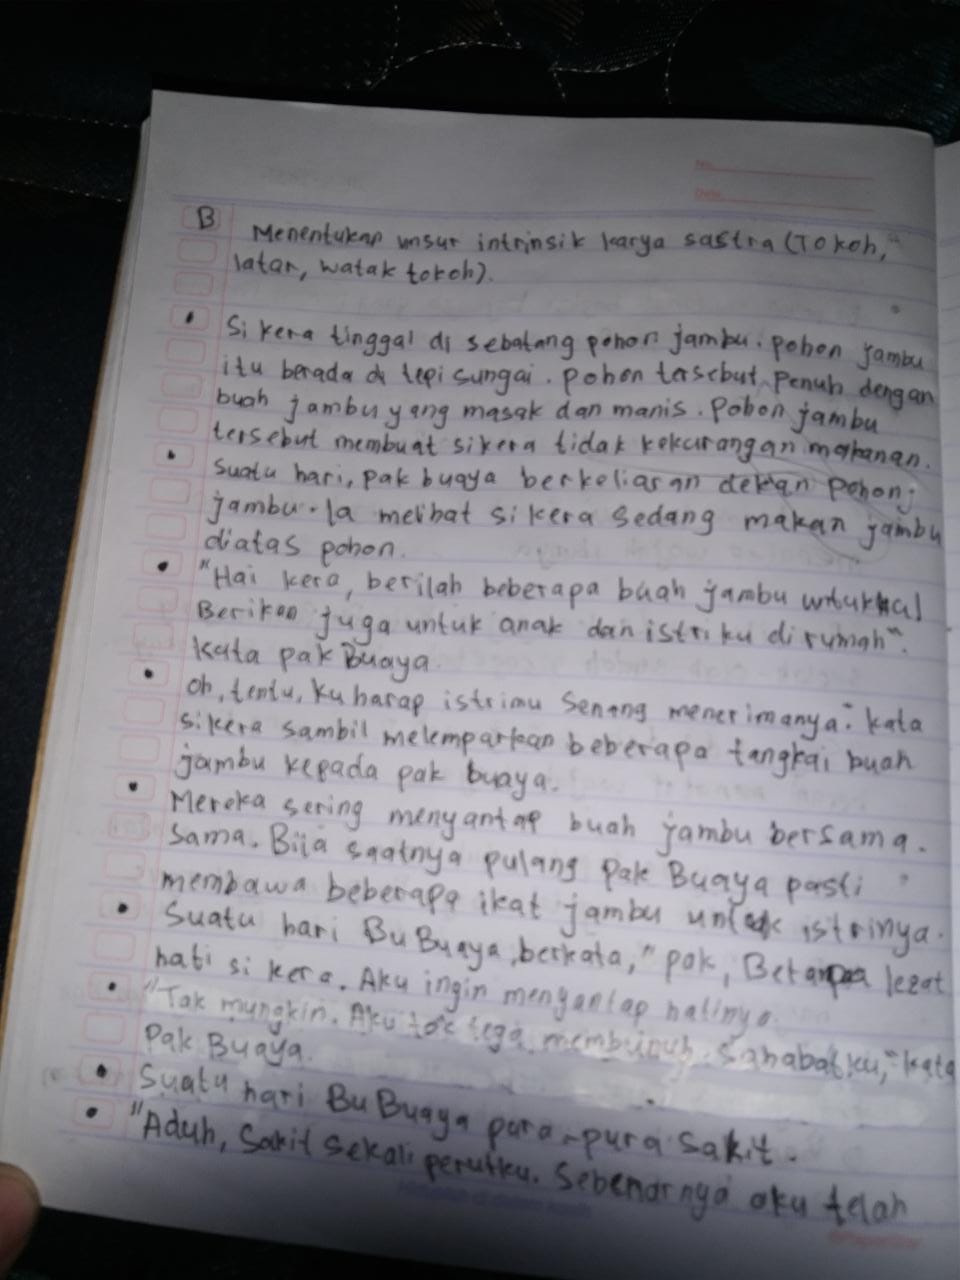 No.
Date
B
Menentukan unsur intrinsik karya sastra (Tokoh,"
latar, watak tokoh).
• Si kera tinggal di sebatang pohon jambu. pohon jambu
itu berada di tepi sungai. pohon tersebut penuh dengan
buah jambu yang masak dan manis. Pohon jambu
tersebut membuat sikera tidak kekurangan makanan.
• Suatu hari, pak buaya berkeliaran dekan pohon;
jambu. Ia melihat sikera sedang makan jambu
diatas pohon.
• "Hai kera, berilah beberapa buah jambu untukku!
Berikan juga untuk anak dan istriku di rumah".
kata pak Buaya.
• Oh, tentu, ku harap istrimu senang menerimanya". kata
sikera sambil melemparkan beberapa tangkai buah
jambu kepada pak buaya.
• Mereka sering menyantap buah jambu bersama.
sama. Bila saatnya pulang Pak Buaya pasti
membawa beberapa ikat jambu untuk istrinya.
• Suatu hari Bu Buaya berkata, "pak, Betapa lezat
hati si kera. Aku ingin menyantap hatinya.
• "Tak mungkin. Aku tak tega membunuh sahabatku," kata
Pak Buaya.
• Suatu hari Bu Buaya pura-pura sakit.
• "Aduh, Sakit sekali perutku. Sebenarnya aku telah